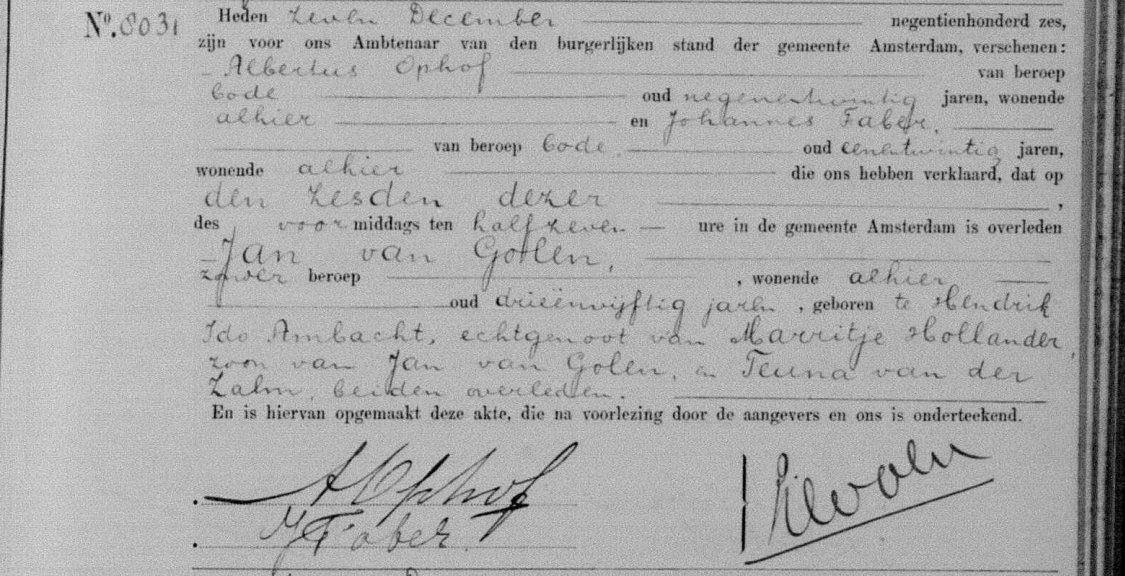 No. 8031 Heden zeven December negentienhonderd zes,
zijn voor ons Ambtenaar van den burgerlijken stand der gemeente Amsterdam, verschenen:
Albertus Ophof van beroep
bode oud negenentwintig jaren, wonende
alhier en Johannes Faber,
van beroep bode, oud eenentwintig jaren,
wonende alhier die ons hebben verklaard, dat op
den zesden dezer,
des voormiddags ten half zeven ure in de gemeente Amsterdam is overleden
Jan van Golen,
zonder beroep, wonende alhier
oud drieënvijftig jaren, geboren te Hendrik
Ido Ambacht, echtgenoot van Marritje Hollander,
zoon van Jan van Golen, en Teuna van der
Zalm, beiden overleden.
En is hiervan opgemaakt deze akte, die na voorlezing door de aangevers en ons is onderteekend.
A Ophof
J Faber